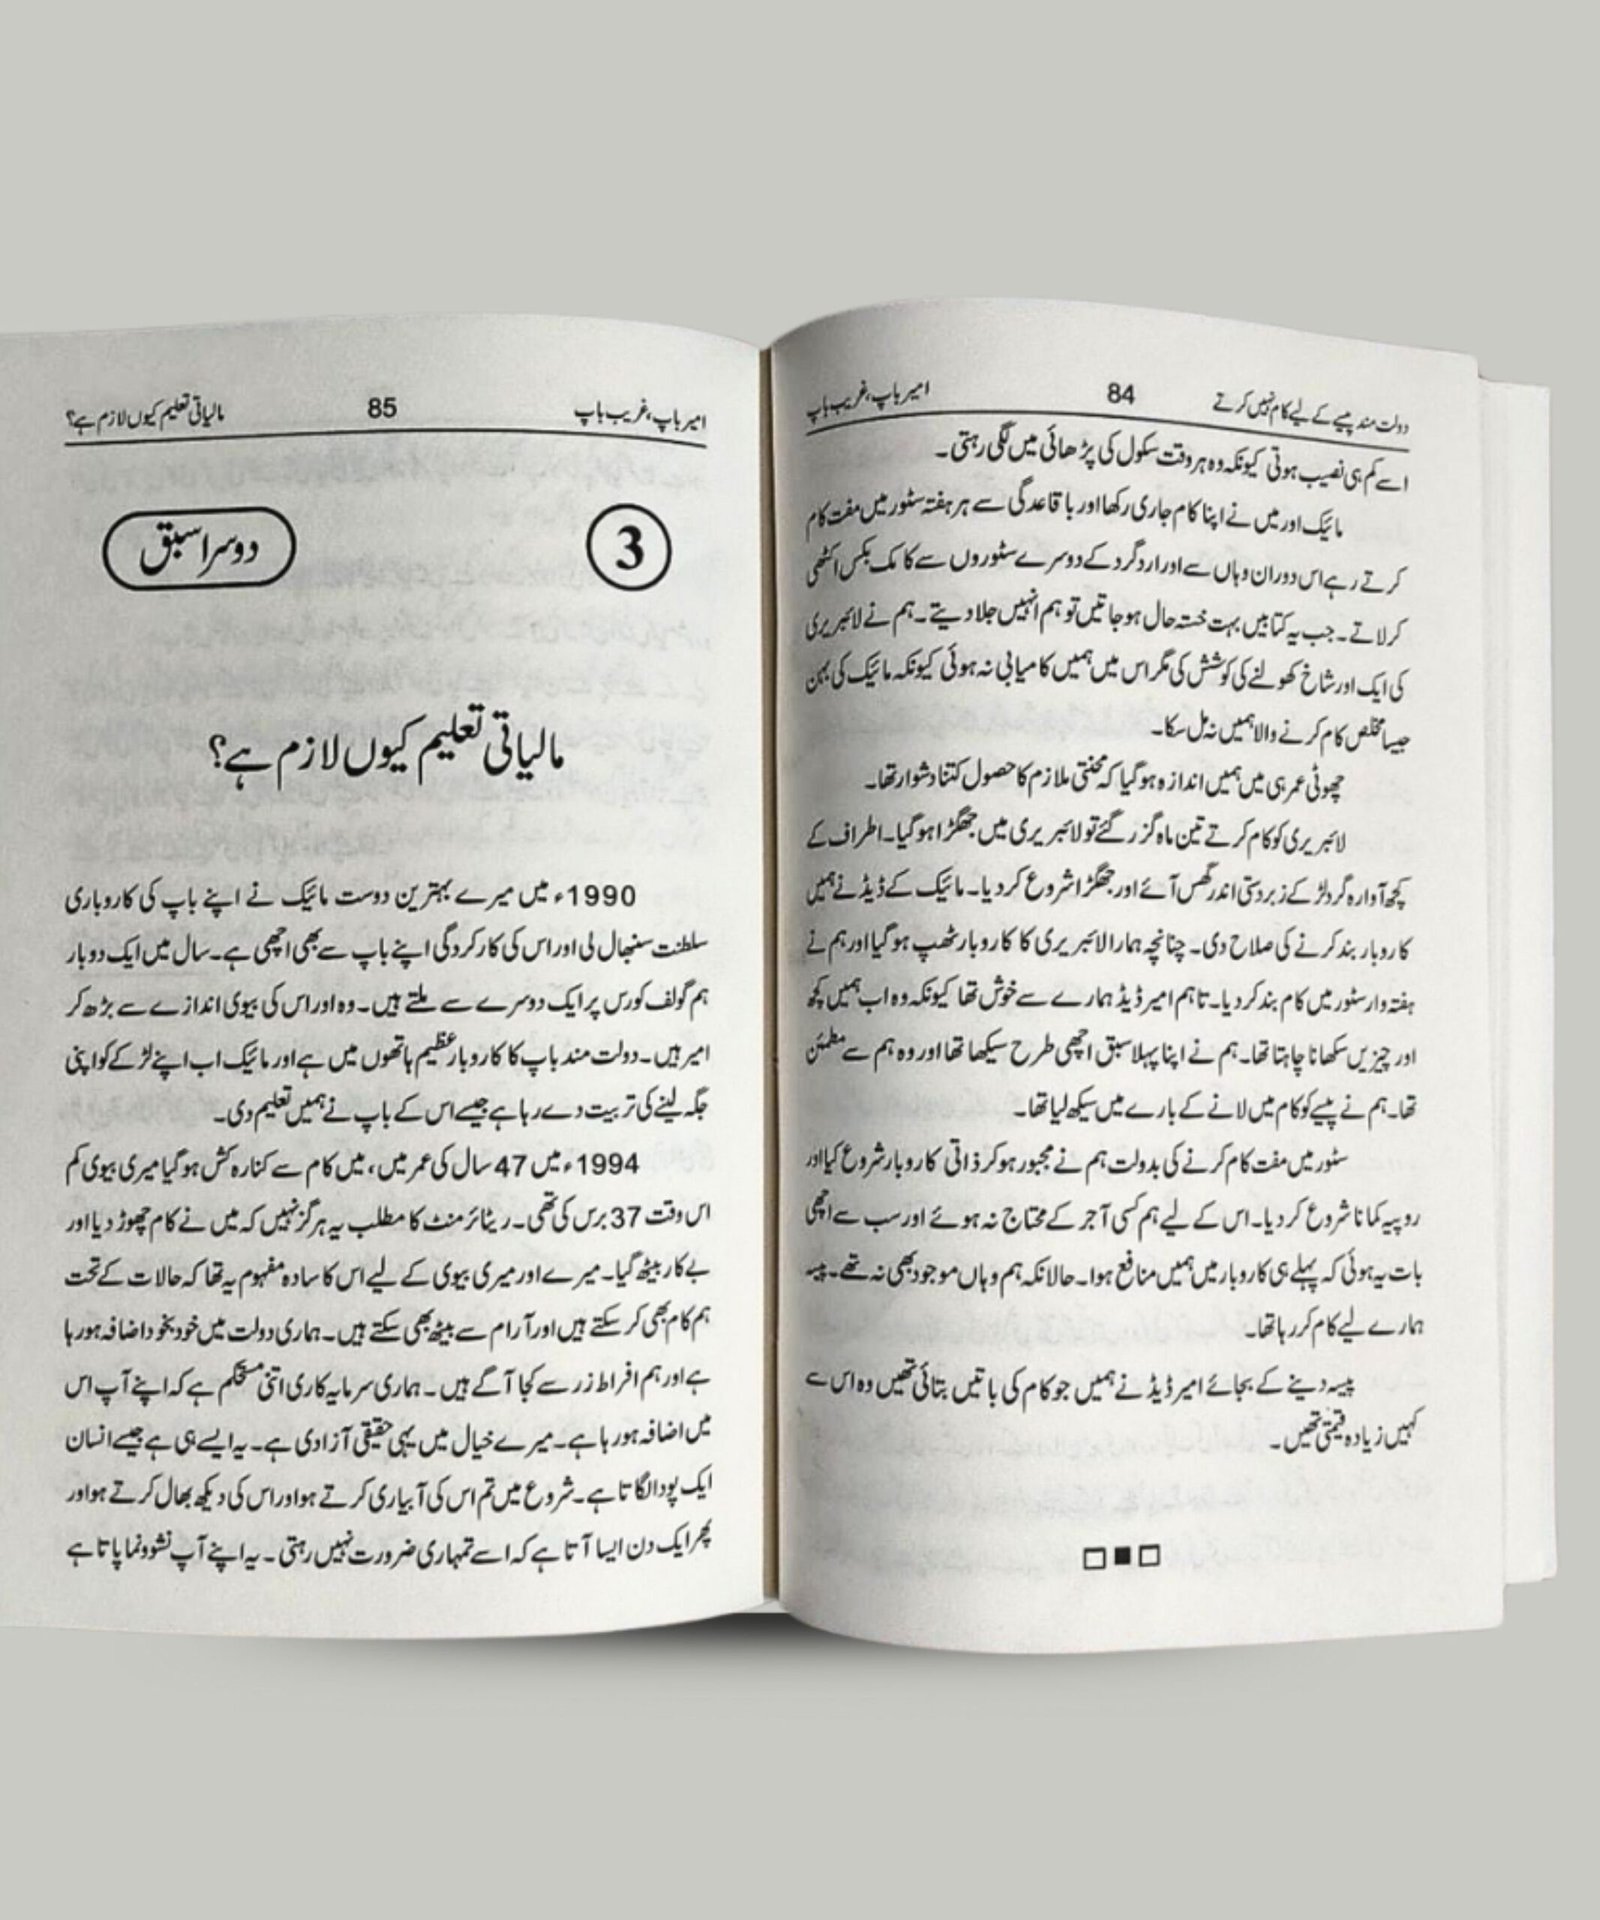 دولت مند پیسے کے لیے کام نہیں کرتے 84 امیر باپ، غریب باپ
اسے کم ہی نصیب ہوتی کیونکہ وہ ہر وقت سکول کی پڑھائی میں لگی رہتی۔
مائیک اور میں نے اپنا کام جاری رکھا اور باقاعدگی سے ہر ہفتہ سٹور میں مفت کام
کرتے رہے اس دوران وہاں سے اور ارد گرد کے دوسرے سٹوروں سے کامک بکس اکٹھی
کر لاتے۔ جب یہ کتابیں بہت خستہ حال ہو جاتیں تو ہم انہیں جلا دیتے۔ ہم نے لائبریری
کی ایک اور شاخ کھولنے کی کوشش کی مگر اس میں ہمیں کامیابی نہ ہوئی کیونکہ مائیک کی بہن
جیسا مخلص کام کرنے والا ہمیں نہ مل سکا۔
چھوٹی عمر ہی میں ہمیں اندازہ ہو گیا کہ محنتی ملازم کا حصول کتنا دشوار تھا۔
لائبریری کو کام کرتے تین ماہ گزر گئے تو لائبریری میں جھگڑا ہو گیا۔ اطراف کے
کچھ آوارہ گرد لڑکے زبردستی اندر گھس آئے اور جھگڑا شروع کر دیا۔ مائیک کے ڈیڈ نے ہمیں
کاروبار بند کرنے کی صلاح دی۔ چنانچہ ہمارا لائبریری کا کاروبار ٹھپ ہو گیا اور ہم نے
ہفتہ وار سٹور میں کام بند کر دیا۔ تاہم امیر ڈیڈ ہمارے سے خوش تھا کیونکہ وہ اب ہمیں کچھ
اور چیزیں سکھانا چاہتا تھا۔ ہم نے اپنا پہلا سبق اچھی طرح سیکھا تھا اور وہ ہم سے مطمئن
تھا۔ ہم نے پیسے کو کام میں لانے کے بارے میں سیکھ لیا تھا۔
سٹور میں مفت کام کرنے کی بدولت ہم نے مجبور ہو کر ذاتی کاروبار شروع کیا اور
روپیہ کمانا شروع کر دیا۔ اس کے لیے ہم کسی آجر کے محتاج نہ ہوئے اور سب سے اچھی
بات یہ ہوئی کہ پہلے ہی کاروبار میں ہمیں منافع ہوا۔ حالانکہ ہم وہاں موجود بھی نہ تھے۔ پیسہ
ہمارے لیے کام کر رہا تھا۔
پیسہ دینے کے بجائے امیر ڈیڈ نے ہمیں جو کام کی باتیں بتائی تھیں وہ اس سے
کہیں زیادہ قیمتی تھیں۔
امیر باپ، غریب باپ 85 مالیاتی تعلیم کیوں لازم ہے؟
3 دوسرا سبق
مالیاتی تعلیم کیوں لازم ہے؟
1990ء میں میرے بہترین دوست مائیک نے اپنے باپ کی کاروباری
سلطنت سنبھال لی اور اس کی کارکردگی اپنے باپ سے بھی اچھی ہے۔ سال میں ایک دو بار
ہم گولف کورس پر ایک دوسرے سے ملتے ہیں۔ وہ اور اس کی بیوی اندازے سے بڑھ کر
امیر ہیں۔ دولت مند باپ کا کاروبار عظیم ہاتھوں میں ہے اور مائیک اب اپنے لڑکے کو اپنی
جگہ لینے کی تربیت دے رہا ہے جیسے اس کے باپ نے ہمیں تعلیم دی۔
1994ء میں 47 سال کی عمر میں، میں کام سے کنارہ کش ہو گیا میری بیوی کم
اس وقت 37 برس کی تھی۔ ریٹائرمنٹ کا مطلب یہ ہرگز نہیں کہ میں نے کام چھوڑ دیا اور
بے کار بیٹھ گیا۔ میرے اور میری بیوی کے لیے اس کا سادہ مفہوم یہ تھا کہ حالات کے تحت
ہم کام بھی کر سکتے ہیں اور آرام سے بیٹھ بھی سکتے ہیں۔ ہماری دولت میں خود بخود اضافہ ہو رہا
ہے اور ہم افراط زر سے کجا آگے ہیں۔ ہماری سرمایہ کاری اتنی مستحکم ہے کہ اپنے آپ اس
میں اضافہ ہو رہا ہے۔ میرے خیال میں یہی حقیقی آزادی ہے۔ یہ ایسے ہی ہے جیسے انسان
ایک پودا لگاتا ہے۔ شروع میں تم اس کی آبیاری کرتے ہو اور اس کی دیکھ بھال کرتے ہو اور
پھر ایک دن ایسا آتا ہے کہ اسے تمہاری ضرورت نہیں رہتی۔ یہ اپنے آپ نشوونما پاتا ہے